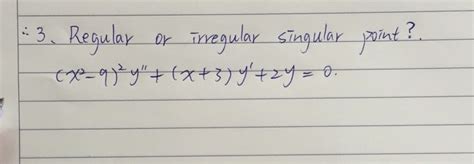 ∴ 3、Regular or irregular singular point?.
(x²-9)² y'' + (x+3) y' + 2y = 0.